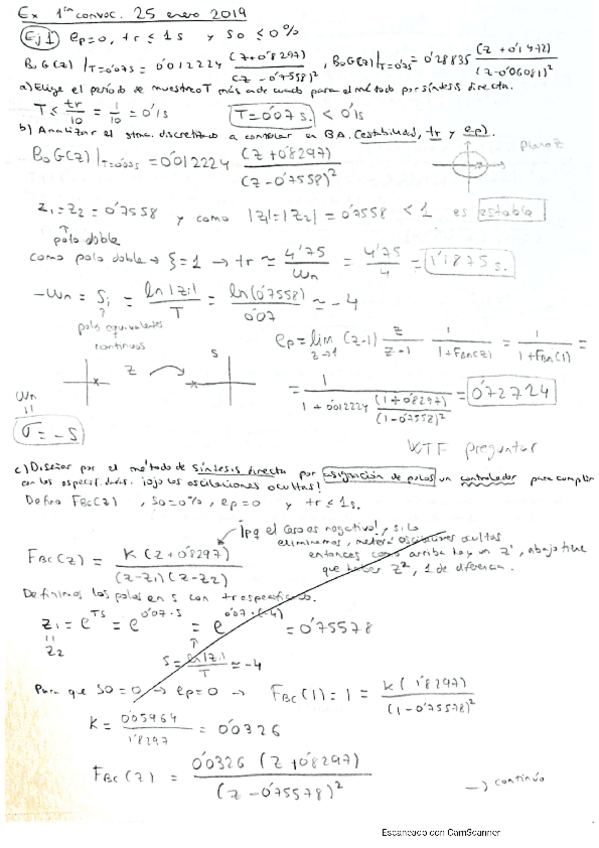 Ex 1ra convoc. 25 enero 2019
Ej 1 ep=0, tr ≤ 1s y so ≤ 0%
B₀G(z)|T=0'07s = 0'012224 (z+0'8297)/(z-0'7558)², B₀G(z)|T=0'7s = 0'28835 (z+0'1472)/(z-0'06081)²
a) Elige el período de muestreo T más adecuado para el método por síntesis directa.
T ≤ tr/10 = 1/10 = 0'1s T=0'07 s. < 0'1s
b) Analizar el stma. discretizado a controlar en BA. (estabilidad, tr y ep).
B₀G(z)|T=0'07s = 0'012224 (z+0'8297)/(z-0'7558)² plano z
z₁=z₂=0'7558 y como |z₁|=|z₂|=0'7558 < 1 es estable
polo doble
como polo doble → ξ=1 → tr ≃ 4'75/ωn = 4'75/4 = 1'1875 s.
-ωn = Si = ln|zi|/T = ln(0'7558)/0'07 ≃ -4
polos equivalentes
continuos
ep = lim z→1 (z-1) z/(z-1) 1/(1+FBA(z)) = 1/(1+FBA(1)) =
z s
= 1/(1+0'012224 (1+0'8297)/(1-0'7558)²) = 0'72724
ωn
=
σ = -s
WTF preguntar
c) Diseñar por el método de síntesis directa por asignación de polos un controlador para cumplir
con las especif. dadas. ¡ojo las oscilaciones ocultas!
Defino FBC(z), so=0%, ep=0 y tr ≤ 1s.
FBC(z) = K(z+0'8297)/((z-z₁)(z-z₂))
¡pq el cero es negativo!, y si lo
eliminamos, meterá oscilaciones ocultas
entonces como arriba hay un z¹, abajo tiene
que haber z², 1 de diferencia.
Definimos los polos en s con tr especificado.
z₁ = e^TS = e^0'07·s = e^0'07·(-4) = 0'75578
=
z₂
s = ln|zi|/T ≃ -4
Para que so=0 → ep=0 → FBC(1) = 1 = K(1'8297)/(1-0'75578)²
K = 0'05964/1'8297 = 0'0326
FBC(z) = 0'0326 (z+0'8297)/(z-0'75578)²
→ continúo
Escaneado con CamScanner